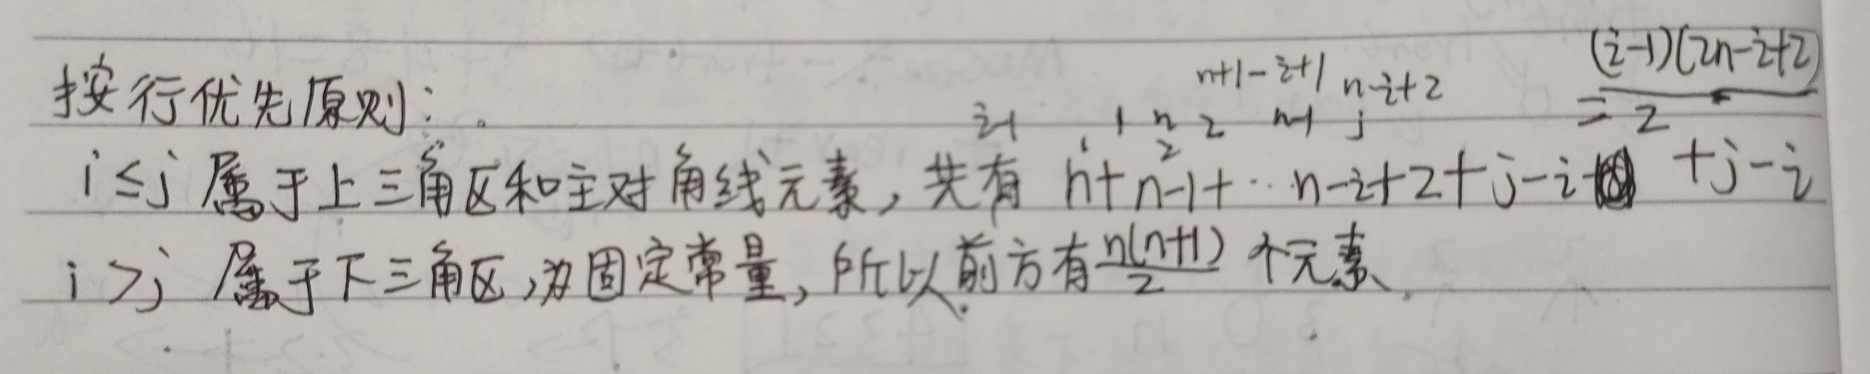 按行优先原则:
i-1 1 n 2 n+1-i+1 n-1 n-i+2 j
i≤j 属于上三角区和主对角线元素, 共有 n+n-1+…n-i+2+j-i = (i-1)(2n-i+2)/2 +j-i
i>j 属于下三角区,为固定常量, 所以前方有 n(n+1)/2 个元素.